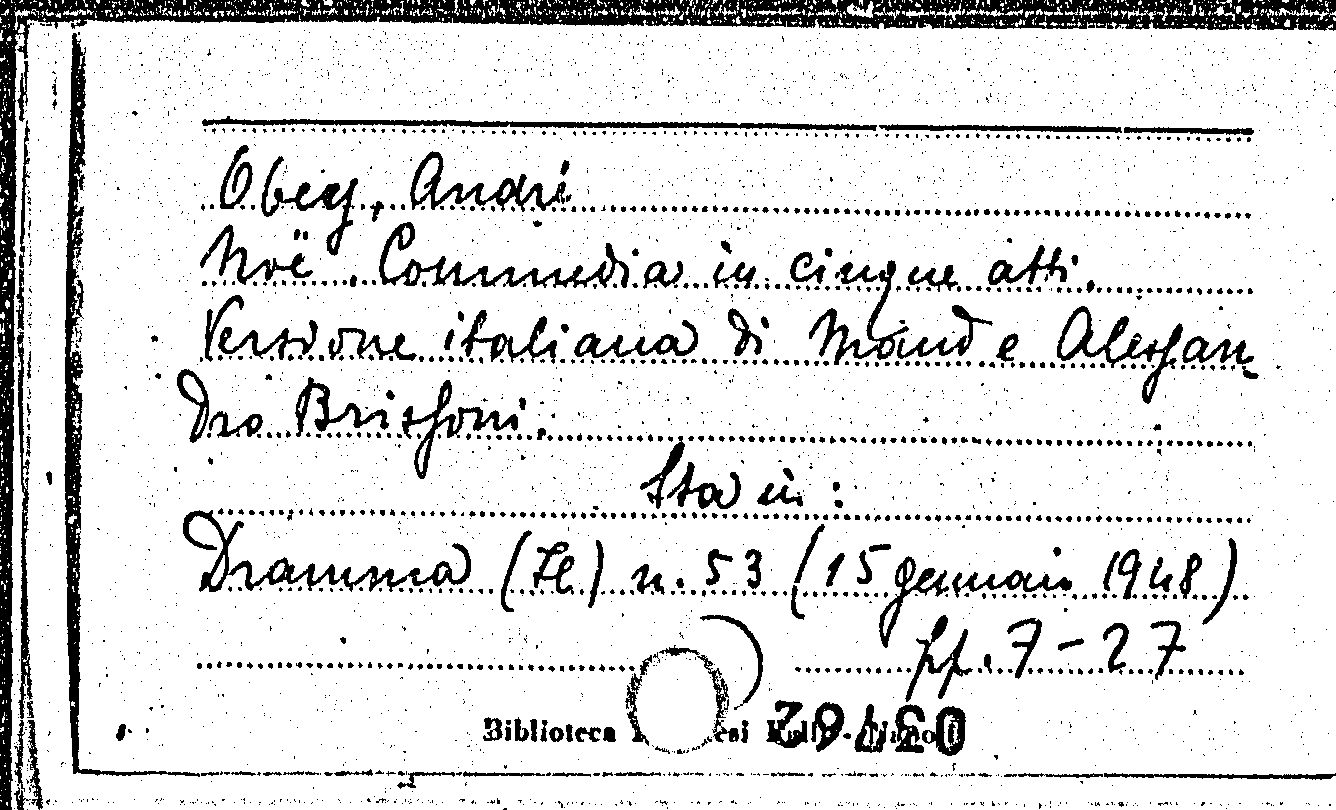 Obey, André
Noë. Commedia in cinque atti.
Versione italiana di Maud e Alessan-
dro Brissoni.
Sta in:
Dramma (Il) n. 53 (15 gennaio 1948)
pp. 7-27
Biblioteca
03762